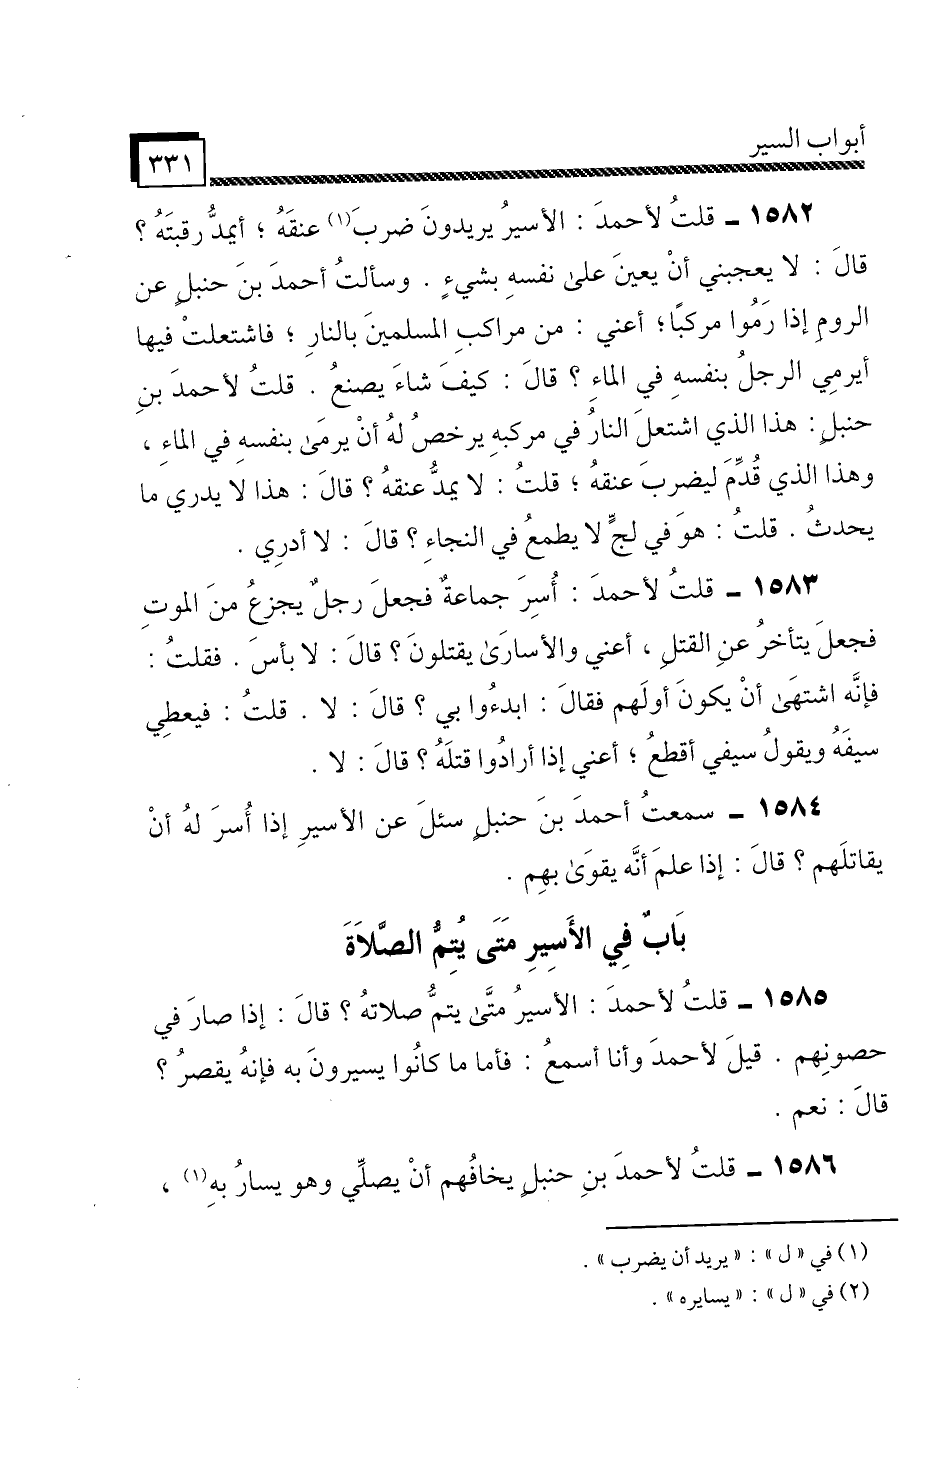 أبواب السير
٣٣١
١٥٨٢ ـ قلتُ لأحمدَ : الأسيرُ يريدونَ ضربَ(١) عنقَهُ ؛ أيمدُّ رقبتَهُ ؟
قالَ : لا يعجبني أنْ يعينَ علىٰ نفسهِ بشيءٍ . وسألتُ أحمدَ بنَ حنبلٍ عن
الرومِ إذا رَمُوا مركبًا؛ أعني : من مراكبِ المسلمينَ بالنارِ ؛ فاشتعلتْ فيها
أيرمِي الرجلُ بنفسهِ في الماءِ ؟ قالَ : كيفَ شاءَ يصنعُ . قلتُ لأحمدَ بنِ
حنبلٍ : هذا الذي اشتعلَ النارُ في مركبهِ يرخصُ لهُ أنْ يرمَىٰ بنفسهِ في الماءِ ،
وهذا الذي قُدِّمَ ليضربَ عنقهُ ؛ قلتُ : لا يمدُّ عنقهُ ؟ قالَ : هذا لا يدري ما
يحدثُ . قلتُ : هوَ في لجٍّ لا يطمعُ في النجاءِ ؟ قالَ : لا أدرِي .
١٥٨٣ ـ قلتُ لأحمدَ : أُسِرَ جماعةٌ فجعلَ رجلٌ يجزعُ منَ الموتِ
فجعلَ يتأخرُ عنِ القتلِ ، أعني والأسارَىٰ يقتلونَ ؟ قالَ : لا بأسَ . فقلتُ :
فإنَّه اشتهَىٰ أنْ يكونَ أولَهم فقالَ : ابدءُوا بي ؟ قالَ : لا . قلتُ : فيعطِي
سيفَهُ ويقولُ سيفي أقطعُ ؛ أعني إذا أرادُوا قتلَهُ ؟ قالَ : لا .
١٥٨٤ ـ سمعتُ أحمدَ بنَ حنبلٍ سئلَ عن الأسيرِ إذا أُسرَ لهُ أنْ
يقاتلَهم ؟ قالَ : إذا علمَ أنَّه يقوَىٰ بهِم .
بَابٌ فِي الأَسِيرِ مَتَى يُتِمُّ الصَّلاَةَ
١٥٨٥ ـ قلتُ لأحمدَ : الأسيرُ متَّىٰ يتمُّ صلاتهُ ؟ قالَ : إذا صارَ في
حصونِهم . قيلَ لأحمدَ وأنا أسمعُ : فأما ما كانُوا يسيرونَ به فإنهُ يقصرُ ؟
قالَ : نعم .
١٥٨٦ ـ قلتُ لأحمدَ بنِ حنبلٍ يخافُهم أنْ يصلِّي وهو يسارُ بهِ(١) ،
(١) في « ل » : « يريد أن يضرب » .
(٢) في « ل » : « يسايره » .